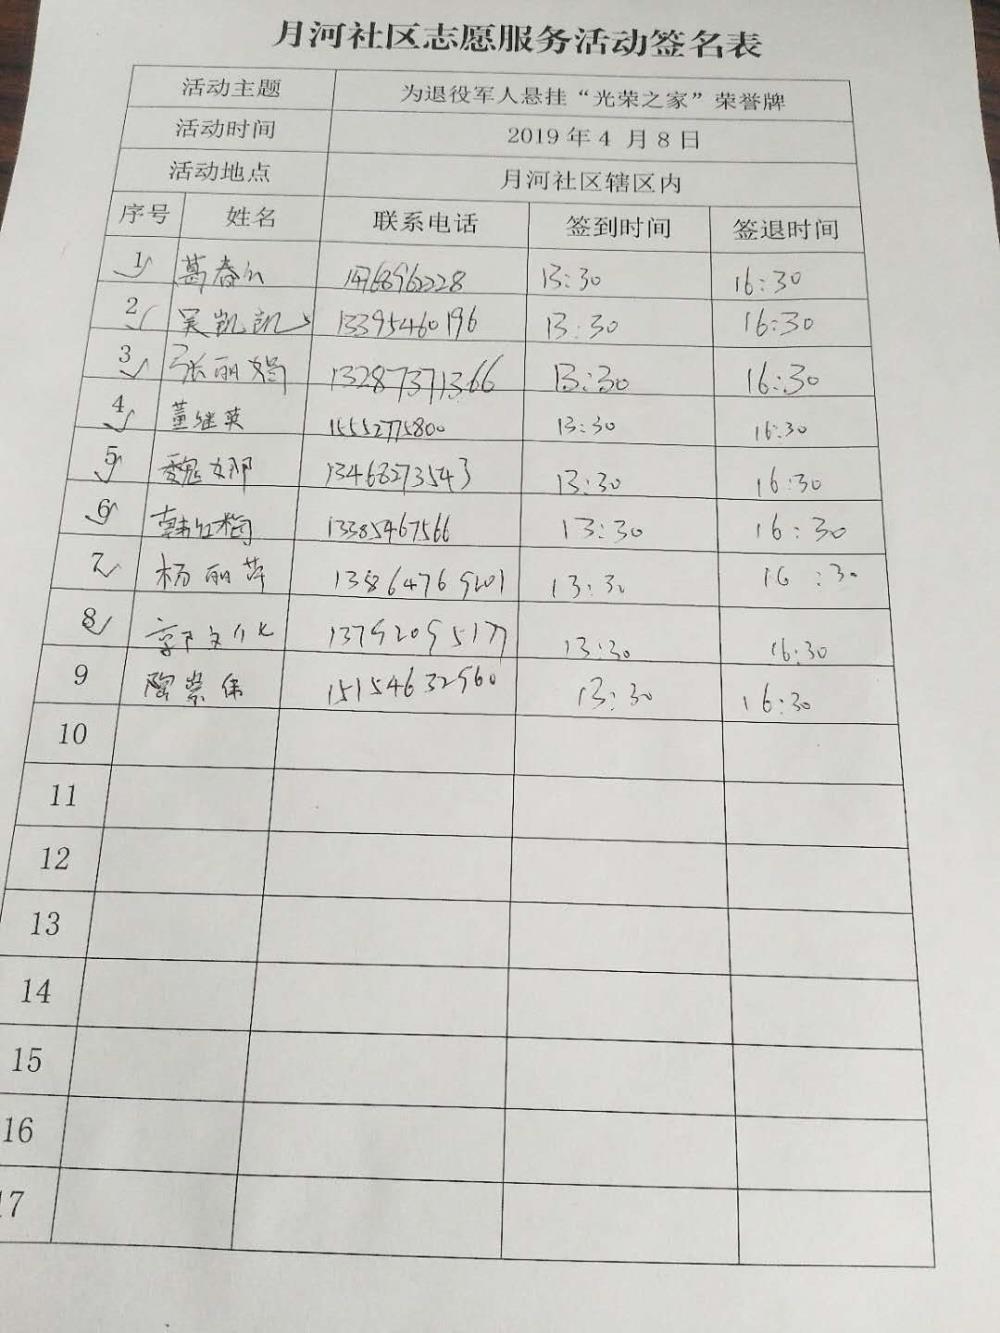 月河社区志愿服务活动签名表
活动主题 为退役军人悬挂“光荣之家”荣誉牌
活动时间 2019 年 4 月 8 日
活动地点 月河社区辖区内
序号 姓名 联系电话 签到时间 签退时间
1 葛春 13:30 16:30
2 吴凯凯 13395460196 13:30 16:30
3 张丽娟 13287371366 13:30 16:30
4 董继英 15552775800 13:30 16:30
5 魏娜 13468273543 13:30 16:30
6 韩红梅 13385467566 13:30 16:30
7 杨丽萍 13864769201 13:30 16:30
8 郭文化 13792095177 13:30 16:30
9 陶荣伟 15154632960 13:30 16:30
10
11
12
13
14
15
16
17